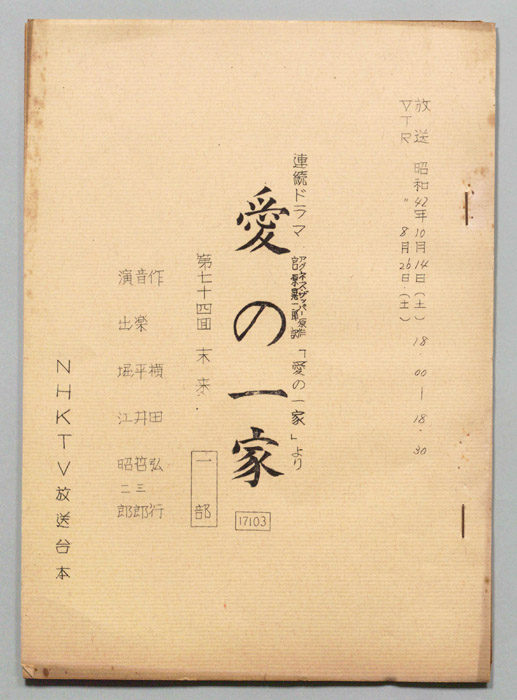 放送 昭和42年10月14日(土) 18 00-18.30
VTR 〃 8月26日(土)
連続ドラマ
アグネス・ザッパー原作
「愛の一家」より
愛の一家
17103
第七十四回 末来
一部
作 横田弘行
音楽 平井哲三郎
演出 堀江昭二郎
NHKTV放送台本